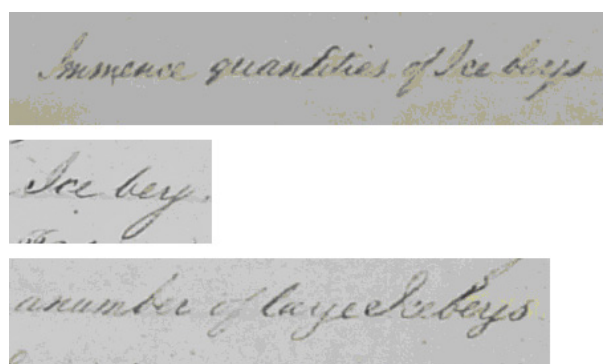 Immence quantities of Ice bergs
Ice berg.
a number of large Icebergs